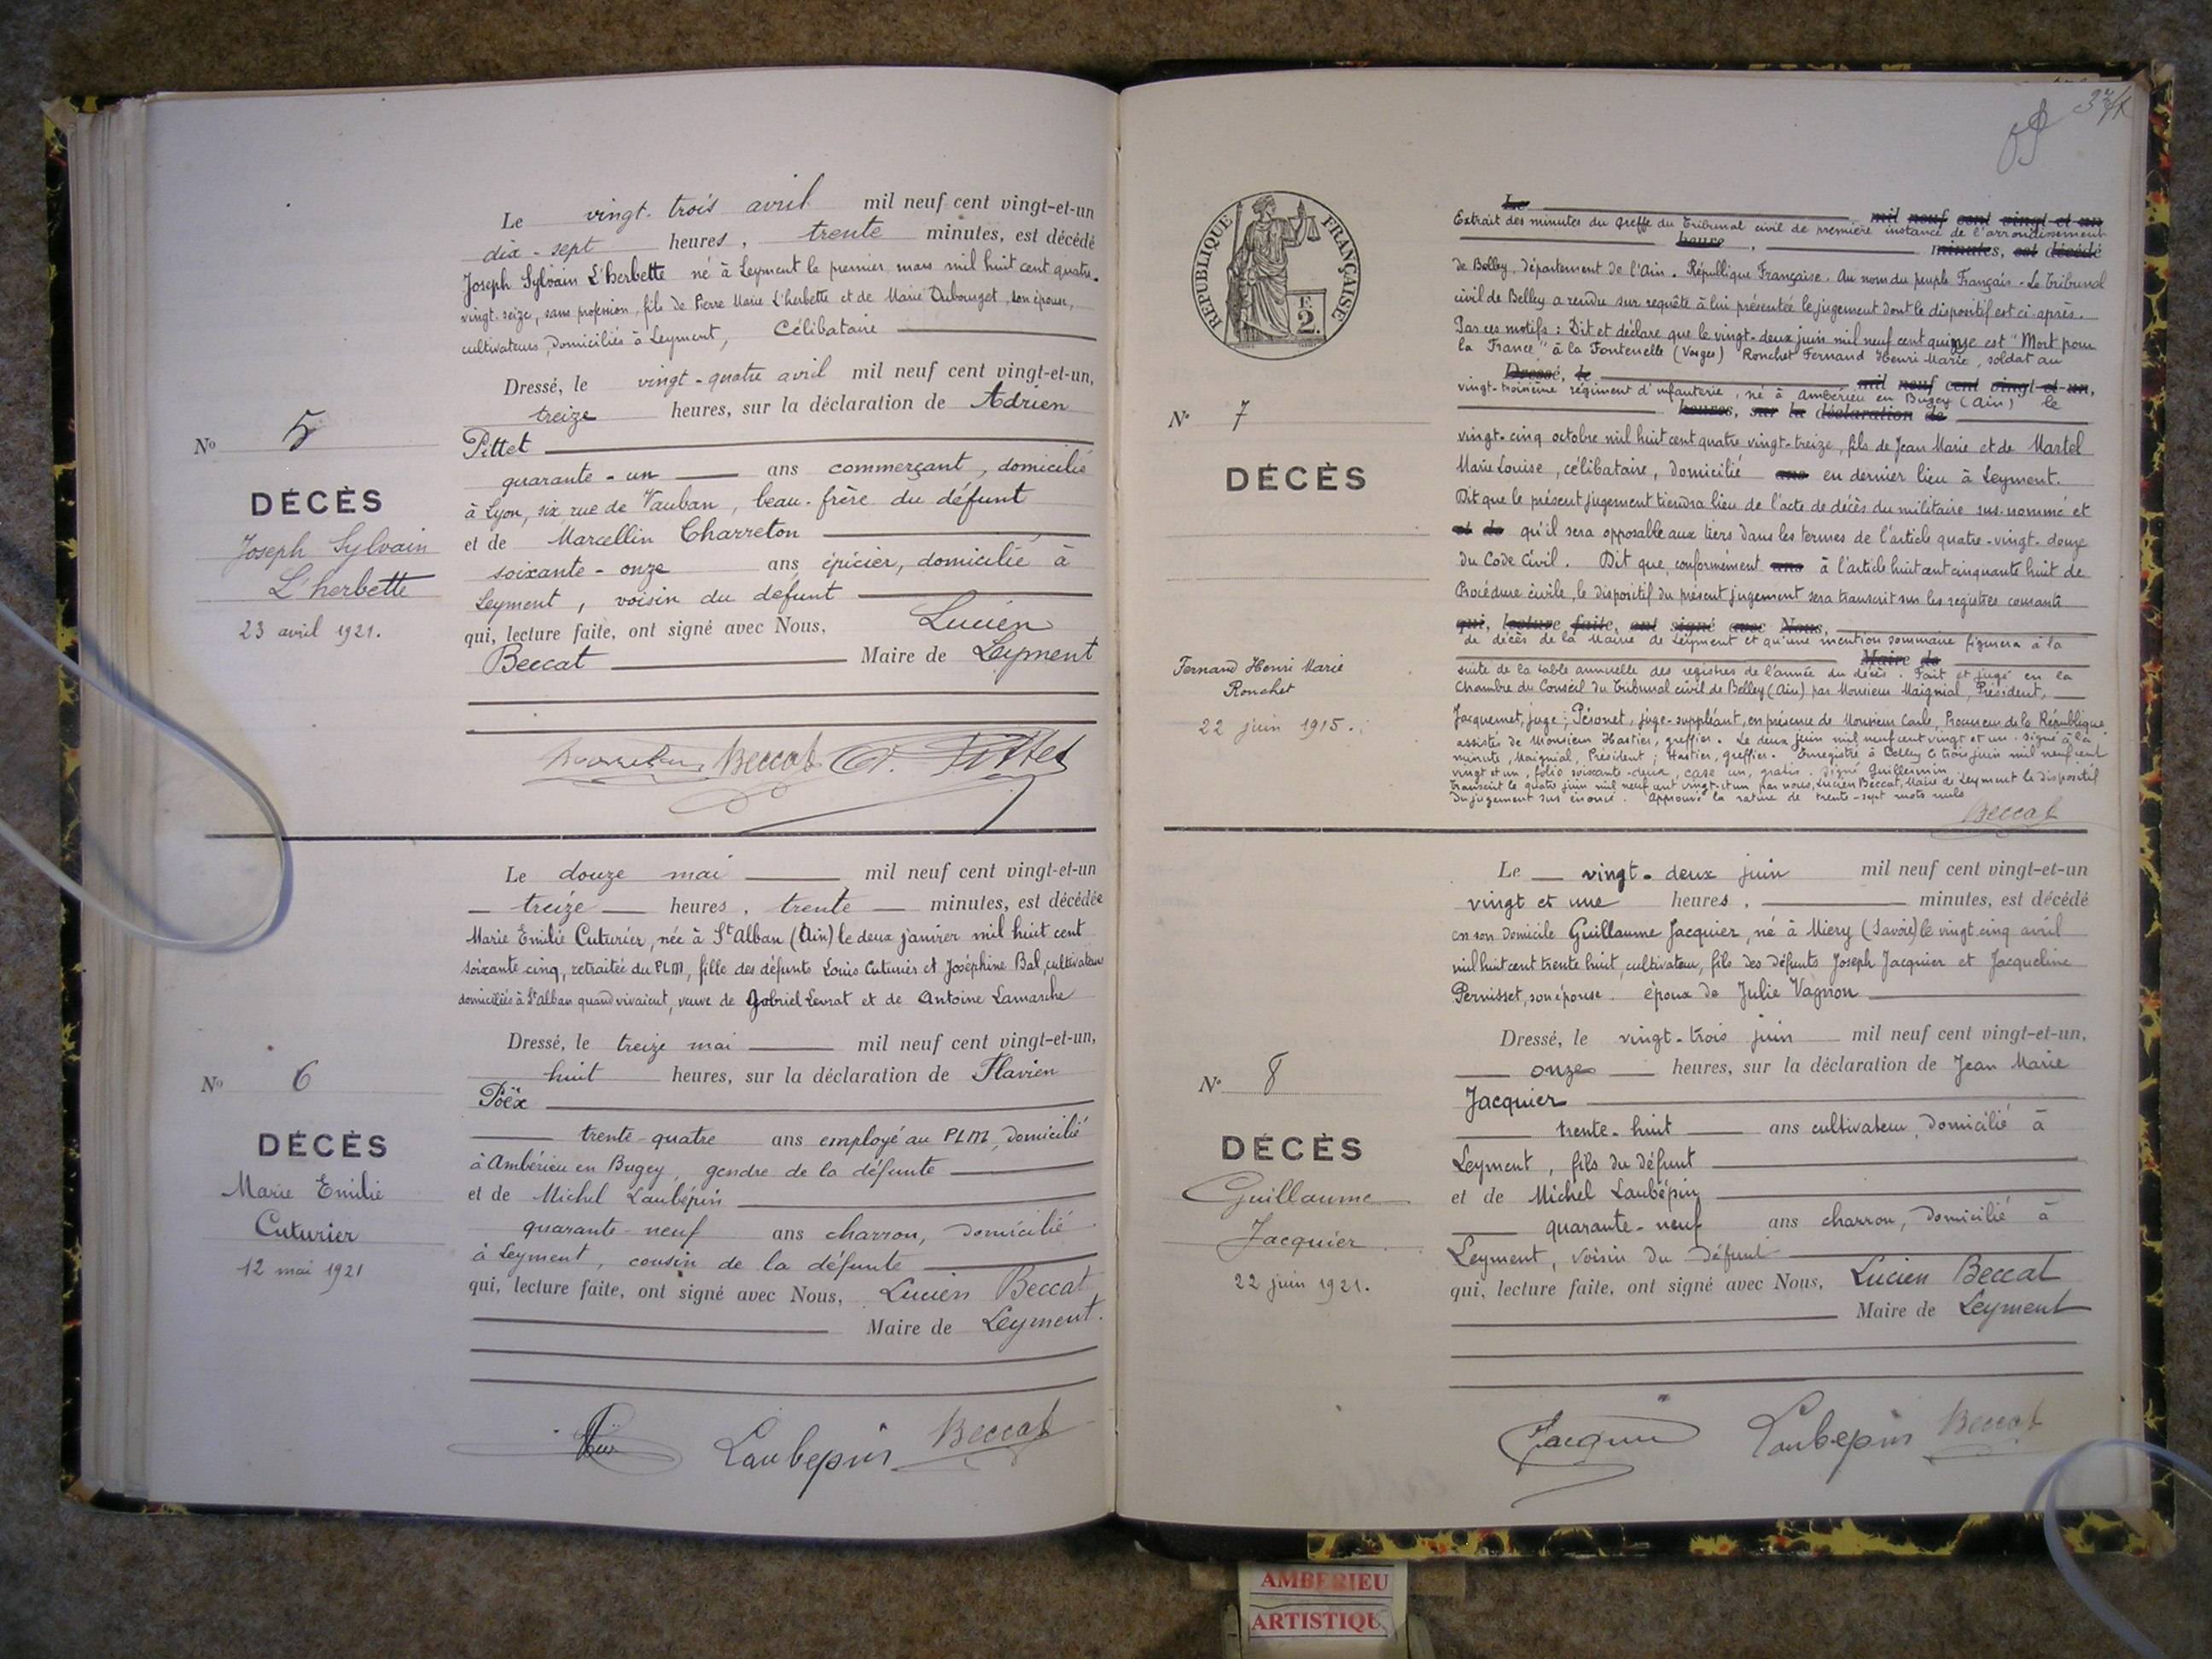 Le vingt-trois avril mil neuf cent vingt-et-un
dix-sept heures, trente minutes, est décédé
Joseph Sylvain L'herbette né à Leyment le premier mars mil huit cent quatre-
vingt-seize, sans profession, fils de Pierre Marie L'herbette et de Marie Dubourget, son épouse,
cultivateurs, domiciliés à Leyment, Célibataire
Dressé, le vingt-quatre avril mil neuf cent vingt-et-un,
treize heures, sur la déclaration de Adrien
Pittet
quarante-un ans commerçant, domicilié
à Lyon, six rue de Vauban, beau-frère du défunt
et de Marcellin Charreton
soixante-onze ans épicier, domicilié à
Leyment, voisin du défunt
qui, lecture faite, ont signé avec Nous, Lucien
Beccat Maire de Leyment
Beccat Pittet
No 5
DÉCÈS
Joseph Sylvain
L'herbette
23 avril 1921.
Le douze mai mil neuf cent vingt-et-un
treize heures, trente minutes, est décédée
Marie Emilie Cuturier, née à St Alban (Ain) le deux janvier mil huit cent
soixante cinq, retraitée du PLM, fille des défunts Louis Cuturier et Joséphine Bal, cultivateurs
domiciliés à St Alban quand vivaient, veuve de Gabriel Levrat et de Antoine Lamarche
Dressé, le treize mai mil neuf cent vingt-et-un,
huit heures, sur la déclaration de Flavien
Poëx
trente-quatre ans employé au PLM, domicilié
à Ambérieu en Bugey, gendre de la défunte
et de Michel Laubépin
quarante-neuf ans charron, domicilié
à Leyment, cousin de la défunte
qui, lecture faite, ont signé avec Nous, Lucien Beccat
Maire de Leyment.
Laubepin Beccat
No 6
DÉCÈS
Marie Emilie
Cuturier
12 mai 1921
RÉPUBLIQUE FRANÇAISE
F.
2.
Le mil neuf cent vingt et un
Extrait des minutes du Greffe du Tribunal civil de première instance de l'arrondissement
heure, minutes, est décédé
de Belley, département de l'Ain. République Française. Au nom du peuple Français. Le Tribunal
civil de Belley a rendu sur requête à lui présentée le jugement dont le dispositif est ci-après.
Par ces motifs : Dit et déclare que le vingt-deux juin mil neuf cent quinze est "Mort pour
la France" à la Fontenelle (Vosges) Ronchet Fernand Henri Marie, soldat au
Dressé, le mil neuf cent vingt-et-un,
vingt-troisième régiment d'infanterie, né à Ambérieu en Bugey (Ain) le
heures, sur la déclaration de
vingt-cinq octobre mil huit cent quatre vingt-treize, fils de Jean Marie et de Martel
Marie Louise, célibataire, domicilié ans en dernier lieu à Leyment.
Dit que le présent jugement tiendra lieu de l'acte de décès du militaire sus-nommé et
et de qu'il sera opposable aux tiers dans les termes de l'article quatre-vingt-douze
du Code Civil. Dit que, conformément ans à l'article huit cent cinquante huit de
Procédure civile, le dispositif du présent jugement sera transcrit sur les registres courants
qui, lecture faite, ont signé avec Nous,
de décès de la Mairie de Leyment et qu'une mention sommaire figurera à la
Maire de
suite de la table annuelle des registres de l'année du décès. Fait et jugé en la
Chambre du Conseil du Tribunal civil de Belley (Ain) par Monsieur Maignial, Président,
Jacquemet, juge ; Péronet, juge-suppléant, en présence de Monsieur Carle, Procureur de la République
assistés de Monsieur Hastier, greffier. Le deux juin mil neuf cent vingt et un. Signé à la
minute, Maignial, Président ; Hastier, greffier. Enregistré à Belley le trois juin mil neuf cent
vingt et un, folio soixante-deux, case un, gratis. Signé Guillermin
Transcrit le quatre juin mil neuf cent vingt-et-un par nous, Lucien Beccat, Maire de Leyment le dispositif
du jugement sus énoncé. Approuvé la rature de trente-sept mots nuls
Beccat
No 7
DÉCÈS
Fernand Henri Marie
Ronchet
22 juin 1915.
Le vingt-deux juin mil neuf cent vingt-et-un
vingt et une heures, minutes, est décédé
en son domicile Guillaume Jacquier, né à Miery (Savoie) le vingt cinq avril
mil huit cent trente huit, cultivateur, fils des défunts Joseph Jacquier et Jacqueline
Pernisset, son épouse. époux de Julie Vagnon
Dressé, le vingt-trois juin mil neuf cent vingt-et-un,
onze heures, sur la déclaration de Jean Marie
Jacquier
trente-huit ans cultivateur, domicilié à
Leyment, fils du défunt
et de Michel Laubépin
quarante-neuf ans charron, domicilié à
Leyment, voisin du défunt
qui, lecture faite, ont signé avec Nous, Lucien Beccat
Maire de Leyment
Jacquier Laubepin Beccat
No 8
DÉCÈS
Guillaume
Jacquier
22 juin 1921.
AMBERIEU
ARTISTIQU